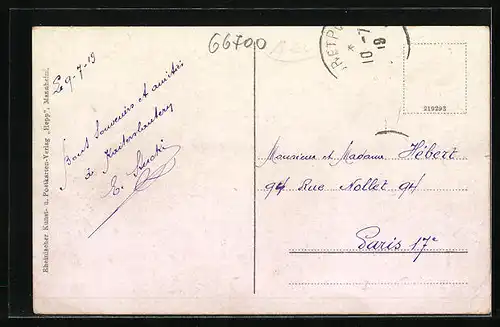 66700
RETPU
10-7
19
219298
Le 9-7-19
Bons Souvenirs et amitiés
à Kaiserslautern
E.
Monsieur et Madame Hébert
94 Rue Nollet 94
Paris 17e
Rheinischer Kunst- u. Postkarten-Verlag „Hepp", Mannheim.